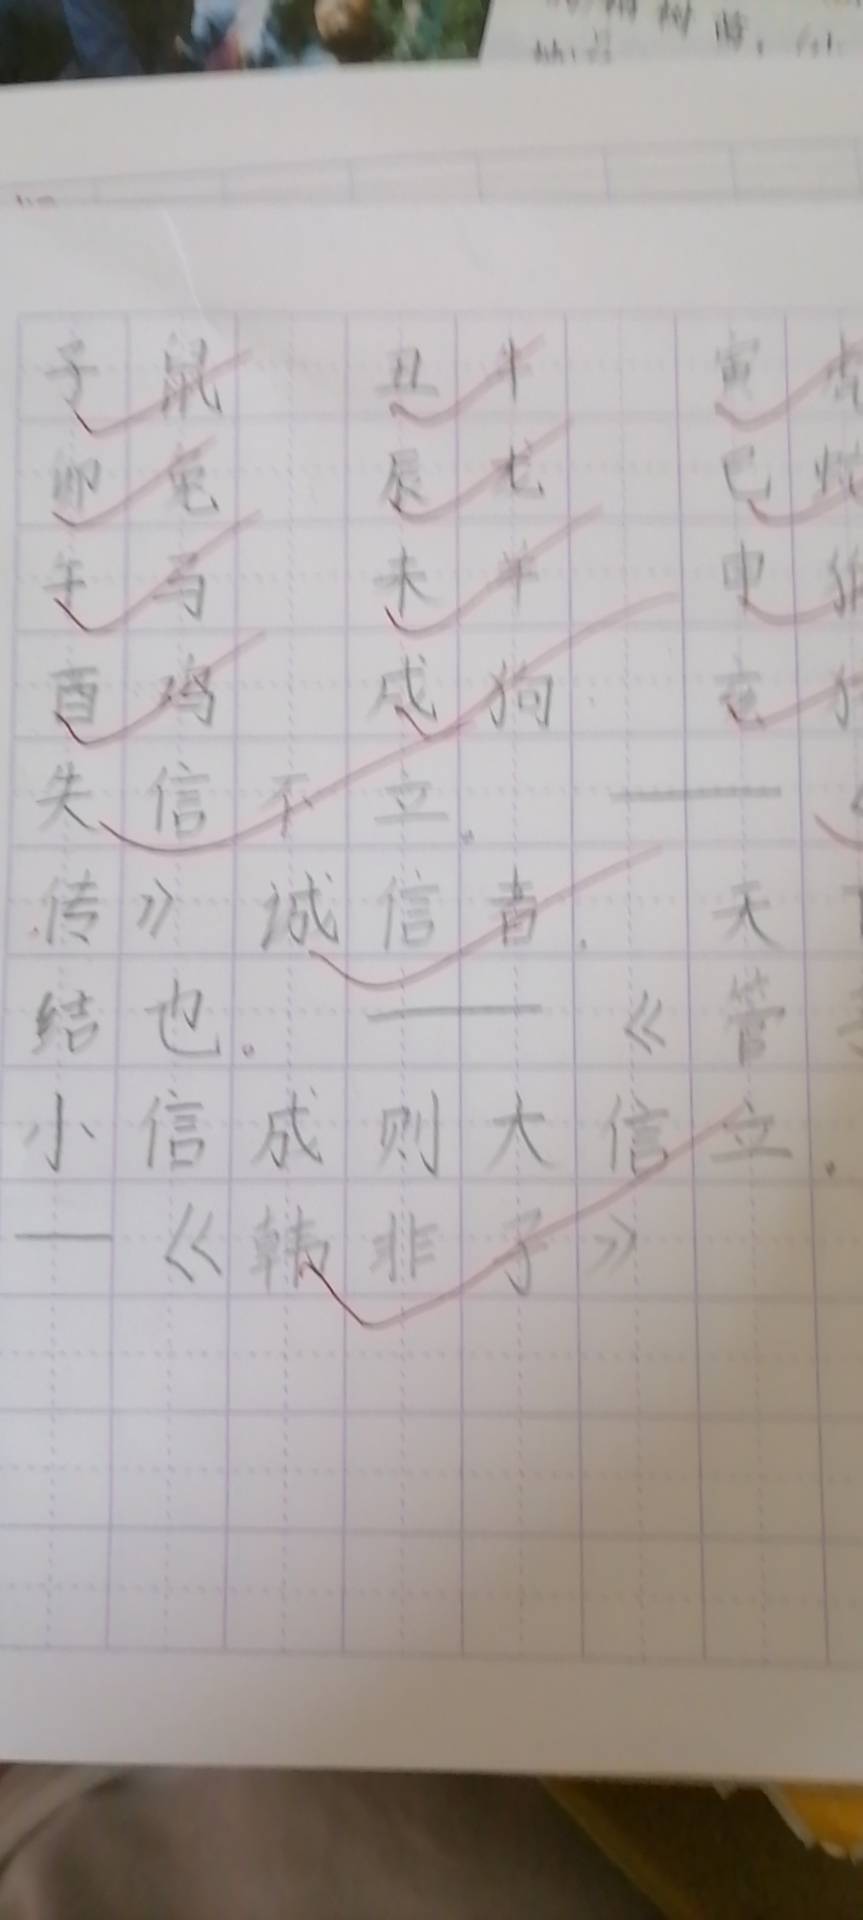 子鼠 丑牛 寅虎
卯兔 辰龙 巳蛇
午马 未羊 申猴
酉鸡 戌狗 亥
失信不立。——
传》诚信者，天
结也。——《管
小信成则大信立。
—《韩非子》